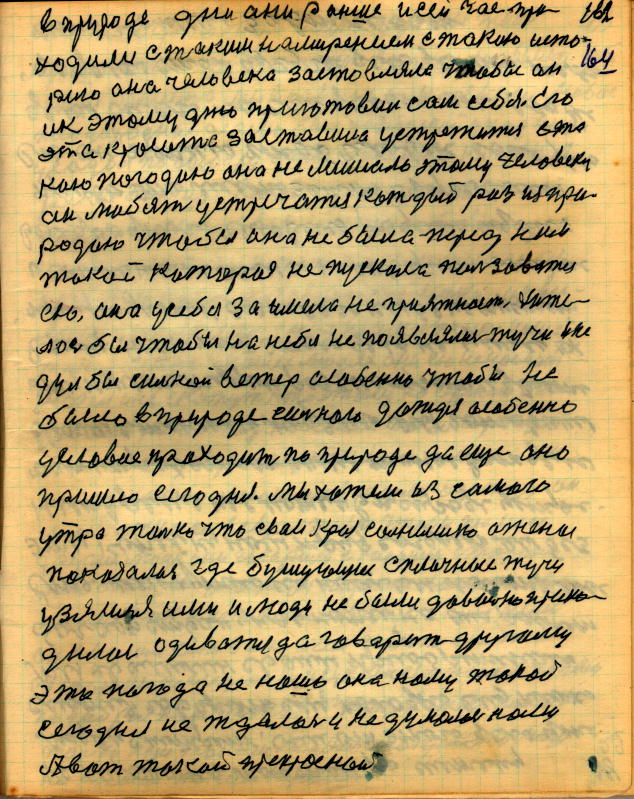 в природе дни ани раньше и сей час при 162
ходили с таким намирением с такою исто- 164
рию она человека заставляла чтобы он
ик этому дню приготовил сам себя. Его
эта красота заставила устретится с та
кою погодою она не мишала этому человеку
он любят устречатя каждый раз из при-
родою чтобы она не была перед ним
такой которая не пускала ползоватся
ею, она у себя за имела не приятност. хате-
лов бы чтобы на небе не появлялис тучи и не
дул бы силной ветер особенно чтобы не
было в природе силного дождя особенно
условие проходит по природе да еще оно
пришло сегодня. Мы хатели из самого
утра толко что сваи края солнышко
показалов где бушующие сплочные тучи
узялися ими и люди не были доволно прихо-
дилос одеватся да говарит другому
эта погода не наша она кому такой
сегодня не ждалася и не думалос кому
Я вот такой прекрасной